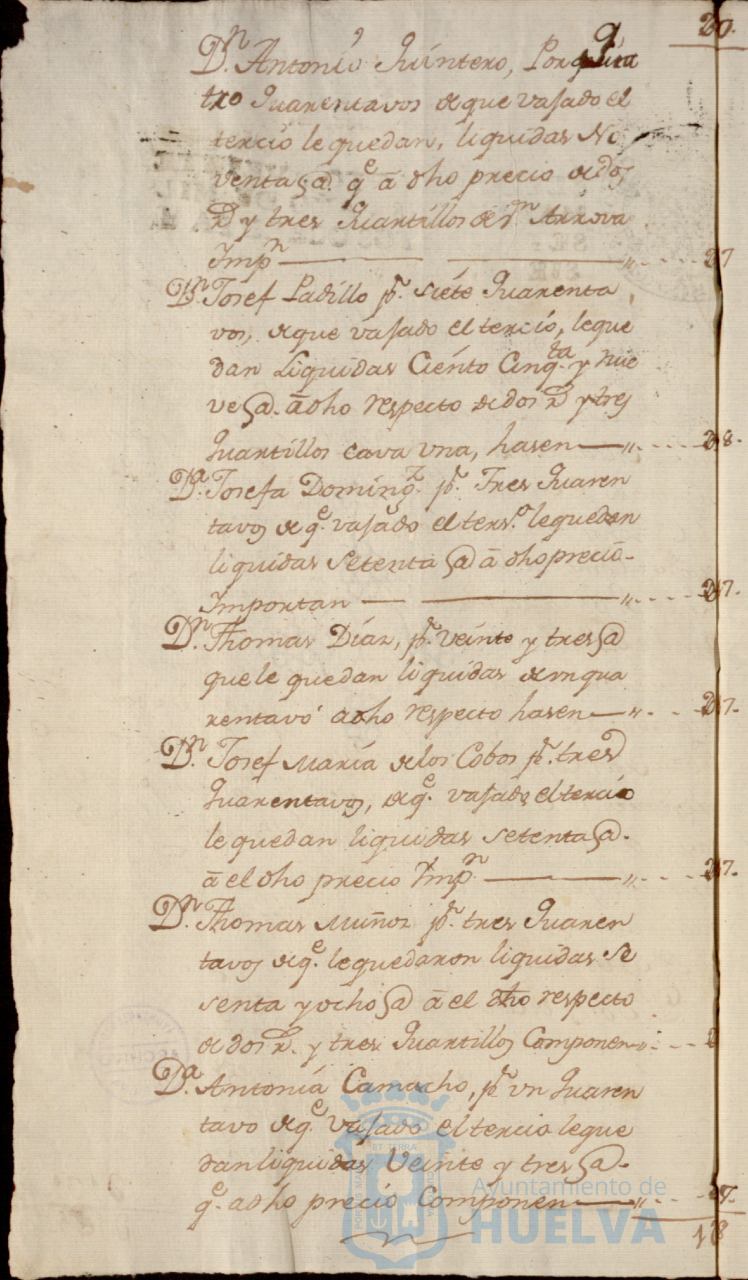 20.
Dn. Antonio Quintero, Por qua
tro Quarentavos de que vajado el
tercio le quedan, liquidas No
venta @. qe a dho precio de dos
rs y tres Quartillos de vn Arrova
Impn — „ 27
Dn. Josef Padillo pr. siete Quarenta
vos, de que vajado el tercio, le que
dan Liquidas Ciento Cinqta. y nue
ve @. a dho respecto de dos rs y tres
Quartillos cava vna, hasen — „ 28.
Da. Josefa Domingz. pr. Tres Quaren
tavos de qe. vajado el terso. le quedan
liquidas Setenta @ a dho precio
Importan — „ 27.
Dn. Thomas Díaz, pr. veinte y tres @
que le quedan liquidas de un qua
rentavo a dho respecto hasen — „ 27.
Dn. Josef María de los Cobos pr. tres
Quarentavos, de qe. vajado el tercio
le quedan liquidas setenta @.
a el dho precio Ympn — „ 27.
Dn. Thomas Muñoz pr. tres Quaren
tavos de qe. le quedaron liquidas se
senta y ocho @ a el dho respecto
de dos rs. y tres Quartillos Componen „ 2
Da. Antonia Camacho, pr vn Quaren
tavo de qe. vajado el tercio le que
dan liquidas Veinte y tres @.
qe. a dho precio Componen — „ 27.
18
Ayuntamiento de
HUELVA